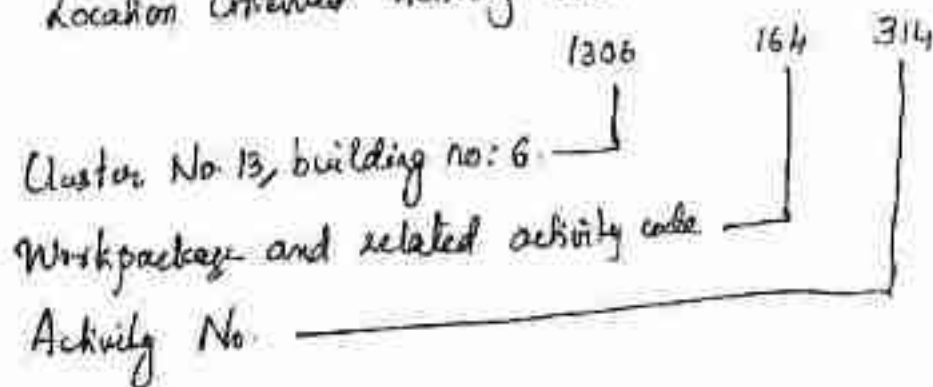 Location Oriented
1306 164 314
Cluster No. 13, building no: 6.
Workpackage and related activity code
Activity No.